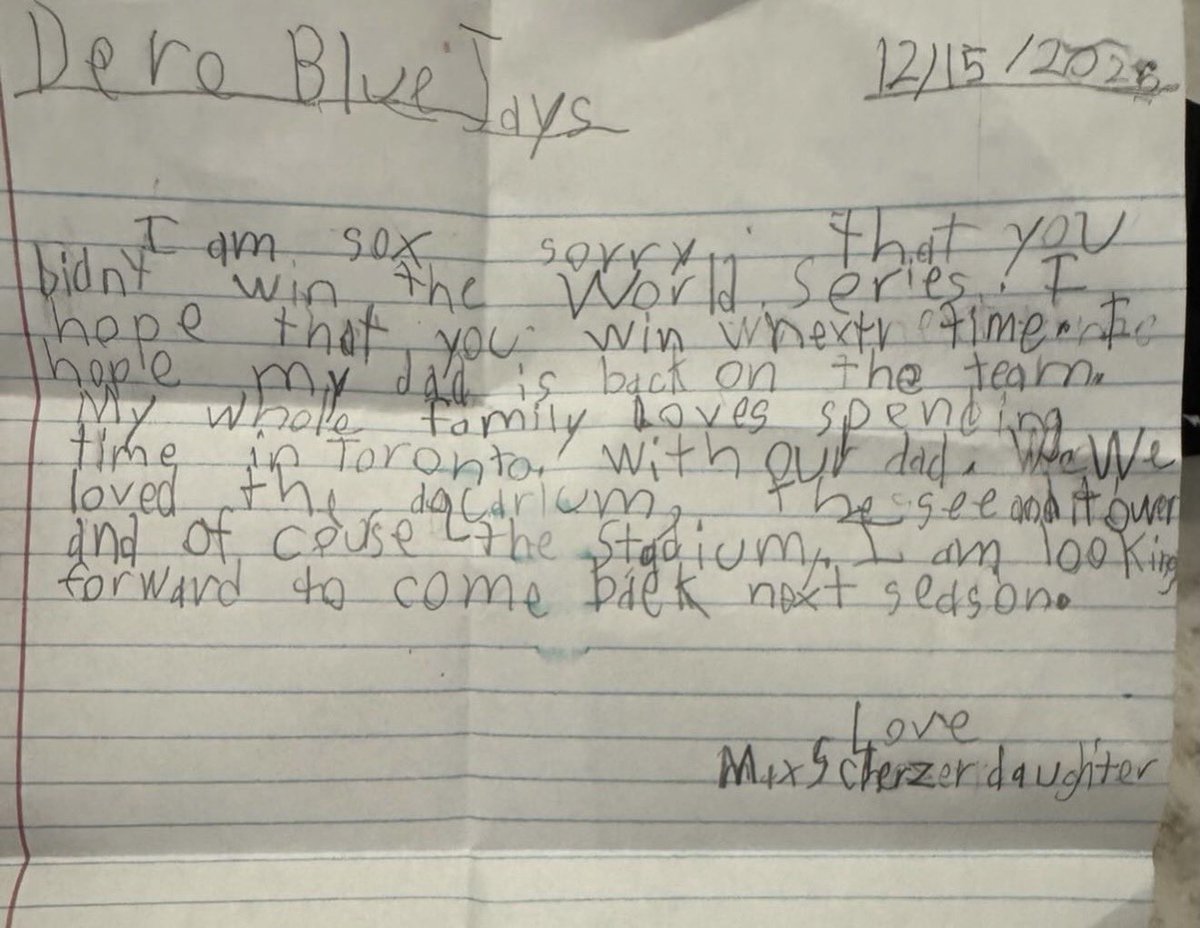 Dero Blue Jays
12/15/2025
I am sox sorry that you
bidnt win the World series. I
hope that you win whextr time. I
hople my dad is back on the team.
My whole family Loves spending
time in Toronto. with our dad. We We
loved the aqcarium, the see and tower
and of couse the stadium. I am looking
forward to come back next season.
Love
Max Scherzer daughter